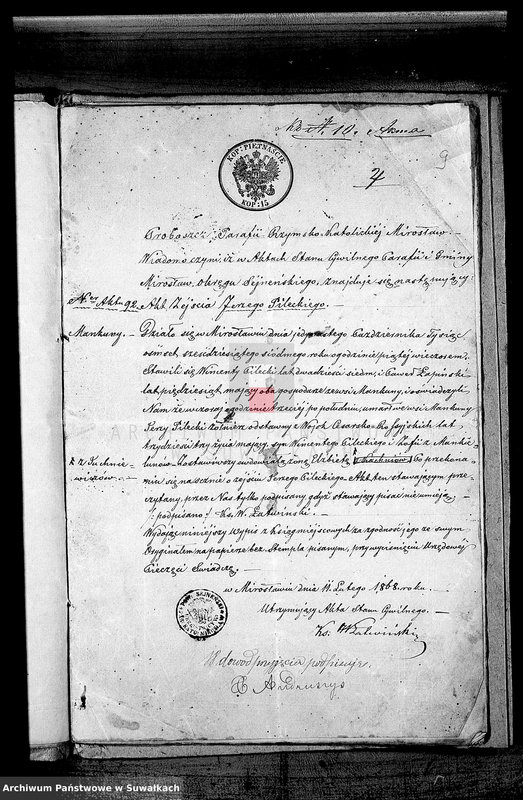 KOP: PIĘTNAŚCIE
KOP: 15
10. Asma
4
9
Proboszcz Parafii Rzymsko Katolickiéj Mirosław
Wiadomo czyni, iż w Aktach Stanu Cywilnego Parafii i Gminy
Mirosław, okręgu Sejneńskiego, znajduje się następujący
Nr Aktu 92. Akt Zejścia Jerzego Pileckiego. —
Mankuny. — Działo się w Mirosławiu dnia jedynastego Października Tysiąc
osmset sześćdziesiątego siódmego roku o godzinie piątej wieczorem.
Stawili się Wincenty Pilecki lat dwadzieścia siedm, i Paweł Łapiński
lat pięćdziesiąt mający oba gospodarze ze wsi Mankuny, i oświadczyli
Nam że wczoraj o godzinie trzeciéj po południu, umarł we wsi Mankuny
Jerzy Pilecki żołnierz odstawny z Wojsk Cesarsko Rossyjskich lat
trzydzieści trzy życia mający, syn Wincentego Pileckiego i Zofii z Mank
unów. Zostawiwszy owdowiałą żonę Elżbietę Po przekona
niu się naocznie o zejściu Jerzego Pileckiego Akt ten stawającym prze
czytany, przez Nas tylko podpisany gdyż stawający pisać nieumieją
/podpisano/ Ks. W. Łatwiński. —
Wydając niniejszy wypis z Ksiąg miejscowych za zgodność jego ze swym
Oryginałem na papierze bez Stempla pisanym, przy wyciśnięciu Urzędowéj
Pieczęci Świadczę. —
w Mirosławiu dnia 11. Lutego 1868. roku.
Utrzymujący Akta Stanu Cywilnego. —
Ks. W Łatwiński
W dowód przyjęcia podpisuje.
Archiwum Państwowe w Suwałkach